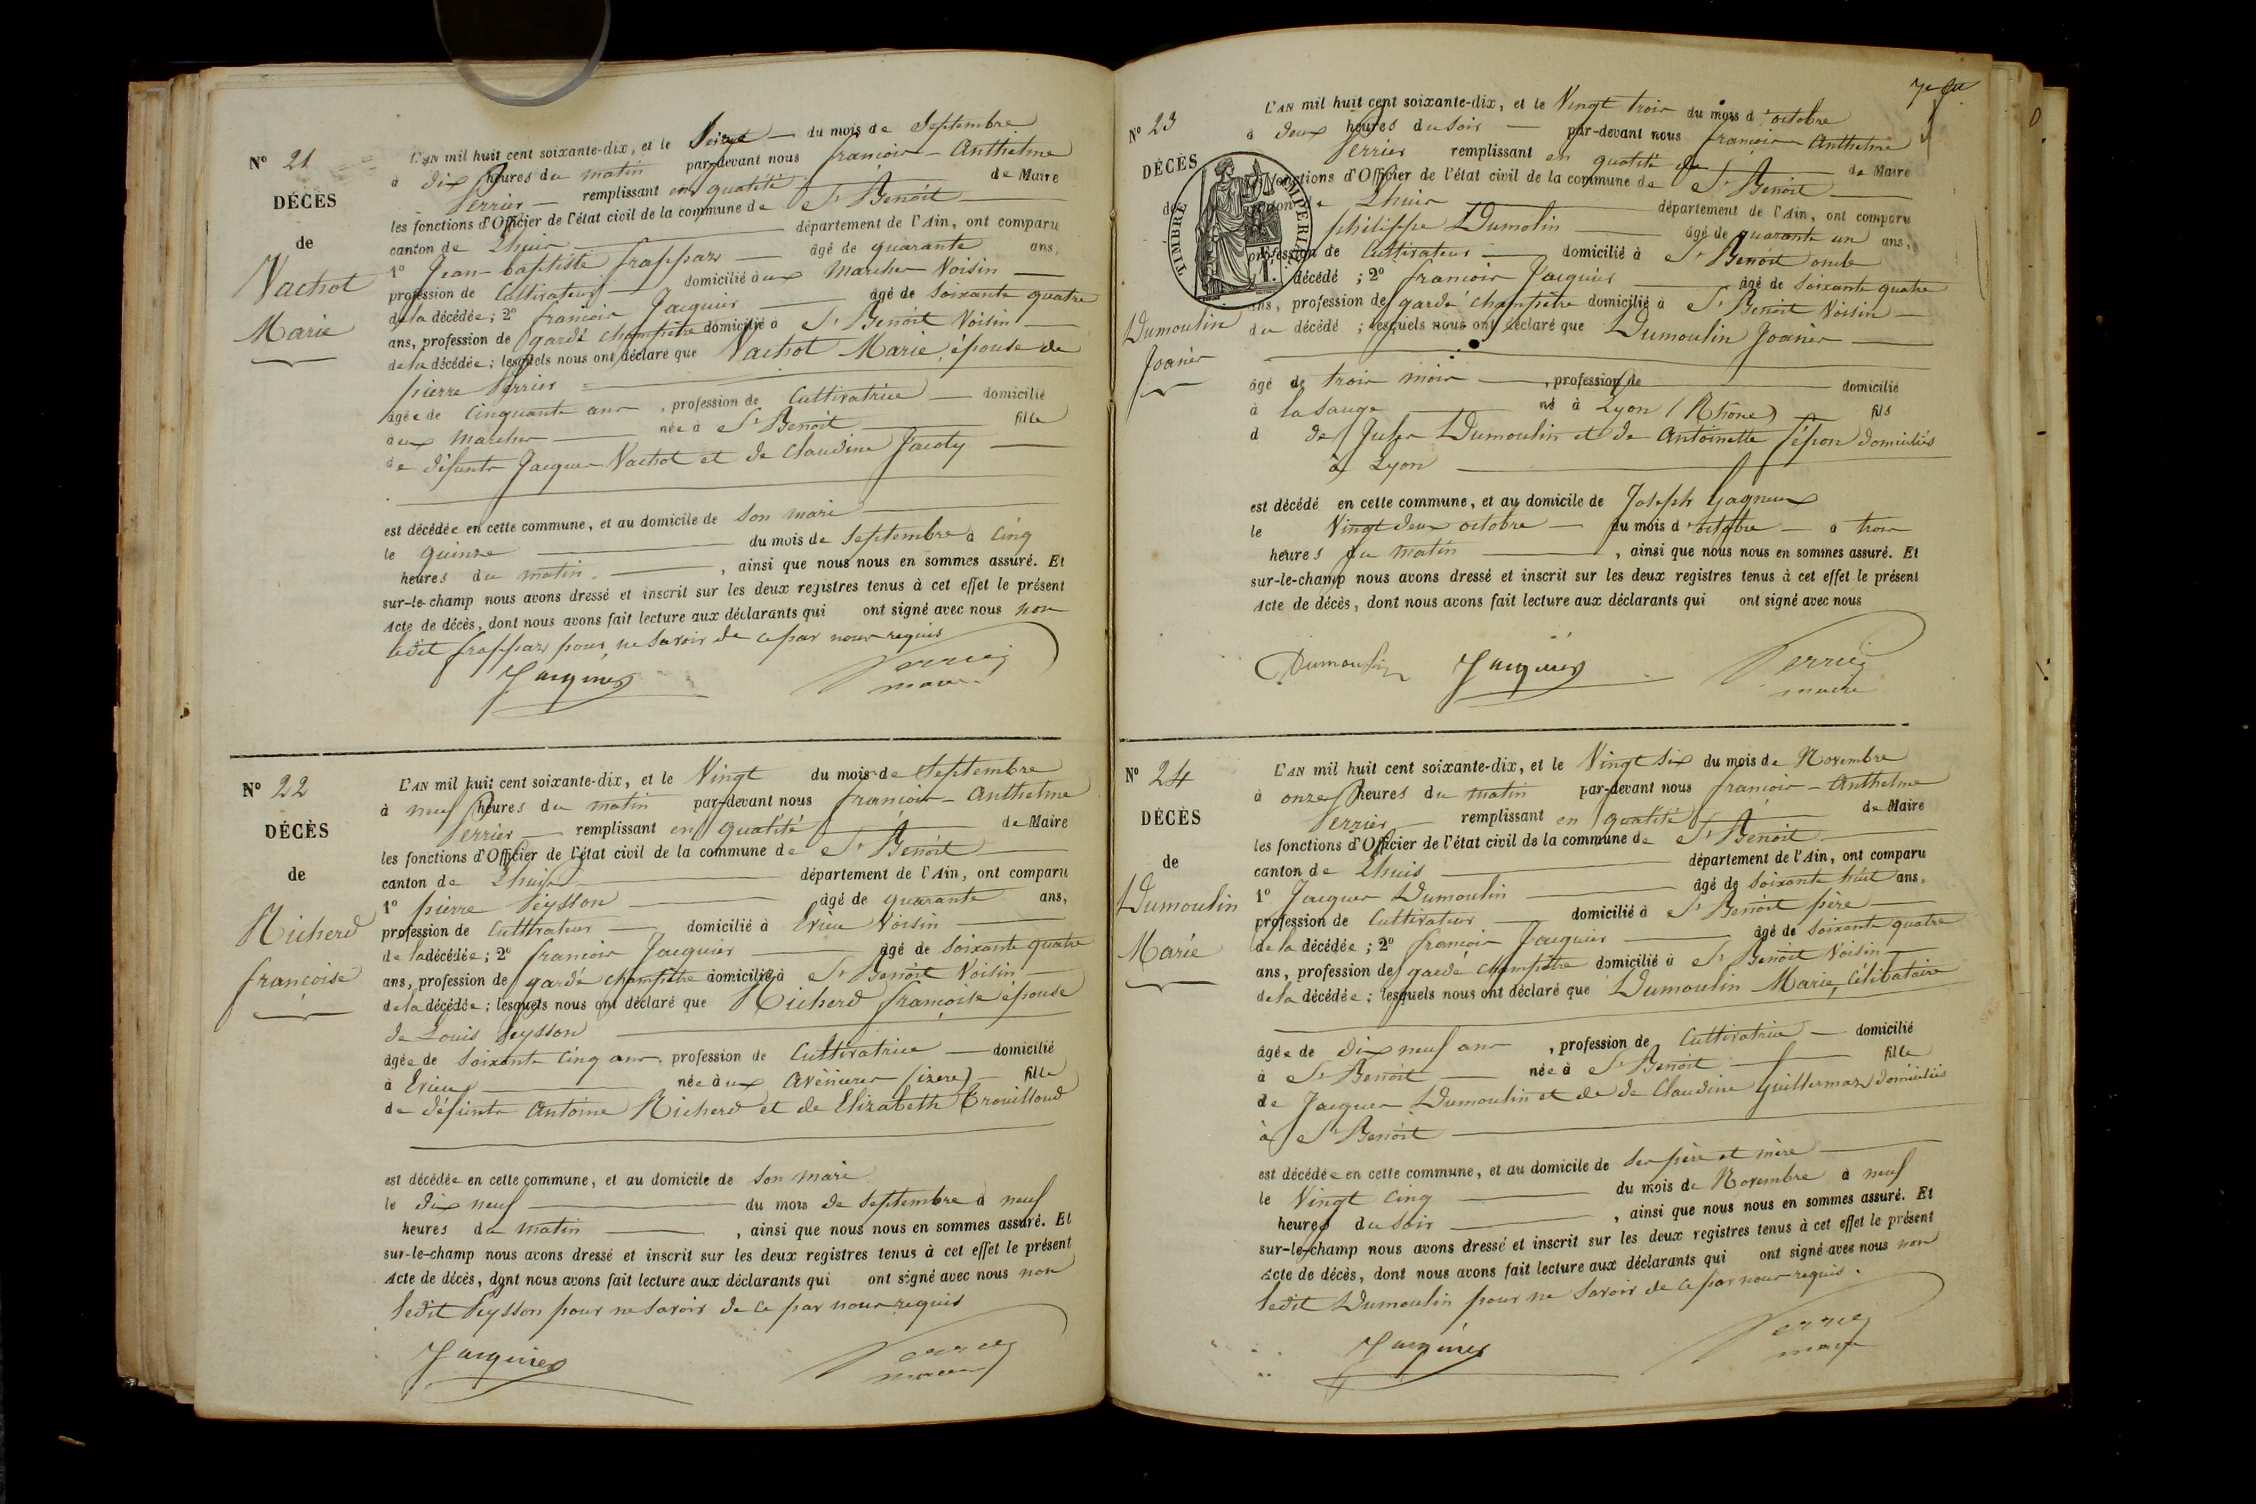 N° 21
DÉCÈS
de
Vachot
Marie
L'AN mil huit cent soixante-dix, et le Seize du mois de Septembre
à dix heures du matin par-devant nous françois-Anthelme
Perrier remplissant en qualité de Maire
les fonctions d'Officier de l'état civil de la commune de St Benoit
canton de Lhuis département de l'Ain, ont comparu
1° Jean-baptiste frappaz âgé de quarante ans,
profession de Cultivateur domicilié aux Marches Voisin
de la décédée; 2° françois Jacquier âgé de soixante quatre
ans, profession de garde champêtre domicilié à St Benoit Voisin
de la décédée; lesquels nous ont déclaré que Vachot Marie épouse de
pierre Perrier
âgée de cinquante ans, profession de Cultivatrice domicilié
aux Marches née à St Benoit fille
de défunts Jacques Vachot et de Claudine Jacoty
est décédée en cette commune, et au domicile de son mari
le quinze du mois de septembre à Cinq
heures du matin, ainsi que nous nous en sommes assuré. Et
sur-le-champ nous avons dressé et inscrit sur les deux registres tenus à cet effet le présent
Acte de décès, dont nous avons fait lecture aux déclarants qui ont signé avec nous non
ledit frappaz pour ne savoir de ce par nous requis
Jacquier Perrier
maire
N° 22
DÉCÈS
de
Richerd
françoise
L'AN mil huit cent soixante-dix, et le Vingt du mois de Septembre
à neuf heures du matin par-devant nous françois-Anthelme
Perrier remplissant en qualité de Maire
les fonctions d'Officier de l'état civil de la commune de St Benoit
canton de Lhuis département de l'Ain, ont comparu
1° pierre Peysson âgé de quarante ans,
profession de Cultivateur domicilié à Evieu Voisin
de la décédée; 2° françois Jacquier âgé de soixante quatre
ans, profession de garde champêtre domicilié à St Benoit Voisin
de la décédée; lesquels nous ont déclaré que Richerd françoise épouse
de Louis Peysson
âgée de soixante cinq ans, profession de Cultivatrice domicilié
à Evieu née aux Avenieres (isere) fille
de défunts Antoine Richerd et de Elizabeth Trouilloud
est décédée en cette commune, et au domicile de son mari
le dix neuf du mois de septembre à neuf
heures du matin, ainsi que nous nous en sommes assuré. Et
sur-le-champ nous avons dressé et inscrit sur les deux registres tenus à cet effet le présent
Acte de décès, dont nous avons fait lecture aux déclarants qui ont signé avec nous non
ledit Peysson pour ne savoir de ce par nous requis
Jacquier Perrier
maire
N° 23
DÉCÈS
de
Dumoulin
Joanès
TIMBRE IMPERIAL
L'AN mil huit cent soixante-dix, et le Vingt trois du mois d'octobre
à deux heures du soir par-devant nous françois Anthelme
Perrier remplissant en qualité de de Maire
fonctions d'Officier de l'état civil de la commune de St Benoit
canton de Lhuis département de l'Ain, ont comparu
philippe Dumolin âgé de quarante un ans,
profession de Cultivateur domicilié à St Benoit oncle
décédé; 2° françois Jacquier âgé de soixante quatre
ans, profession de garde champêtre domicilié à St Benoit Voisin
du décédé; lesquels nous ont déclaré que Dumoulin Joanès
âgé de trois mois, profession de domicilié
à la sauge né à Lyon (Rhône) fils
d de Jules Dumoulin et de Antoinette Pépon domiciliés
à Lyon
est décédé en cette commune, et au domicile de Joseph Gagneux
le Vingt deux octobre du mois d'octobre à trois
heures du matin, ainsi que nous nous en sommes assuré. Et
sur-le-champ nous avons dressé et inscrit sur les deux registres tenus à cet effet le présent
Acte de décès, dont nous avons fait lecture aux déclarants qui ont signé avec nous
Dumoulin Jacquier Perrier
maire
N° 24
DÉCÈS
de
Dumoulin
Marie
L'AN mil huit cent soixante-dix, et le Vingt six du mois de Novembre
à onze heures du matin par-devant nous françois-Anthelme
Perrier remplissant en qualité de Maire
les fonctions d'Officier de l'état civil de la commune de St Benoit
canton de Lhuis département de l'Ain, ont comparu
1° Jacques Dumoulin âgé de soixante huit ans,
profession de Cultivateur domicilié à St Benoit père
de la décédée; 2° françois Jacquier âgé de soixante quatre
ans, profession de garde champêtre domicilié à St Benoit Voisin
de la décédée; lesquels nous ont déclaré que Dumoulin Marie, Célibataire
âgée de dix neuf ans, profession de Cultivatrice domicilié
à St Benoit née à St Benoit fille
de Jacques Dumoulin et de de Claudine Guillermaz domiciliés
à St Benoit
est décédée en cette commune, et au domicile de ses père et mère
le Vingt cinq du mois de Novembre à neuf
heures du soir, ainsi que nous nous en sommes assuré. Et
sur-le-champ nous avons dressé et inscrit sur les deux registres tenus à cet effet le présent
Acte de décès, dont nous avons fait lecture aux déclarants qui ont signé avec nous non
ledit Dumoulin pour ne savoir de ce par nous requis.
Jacquier Perrier
maire